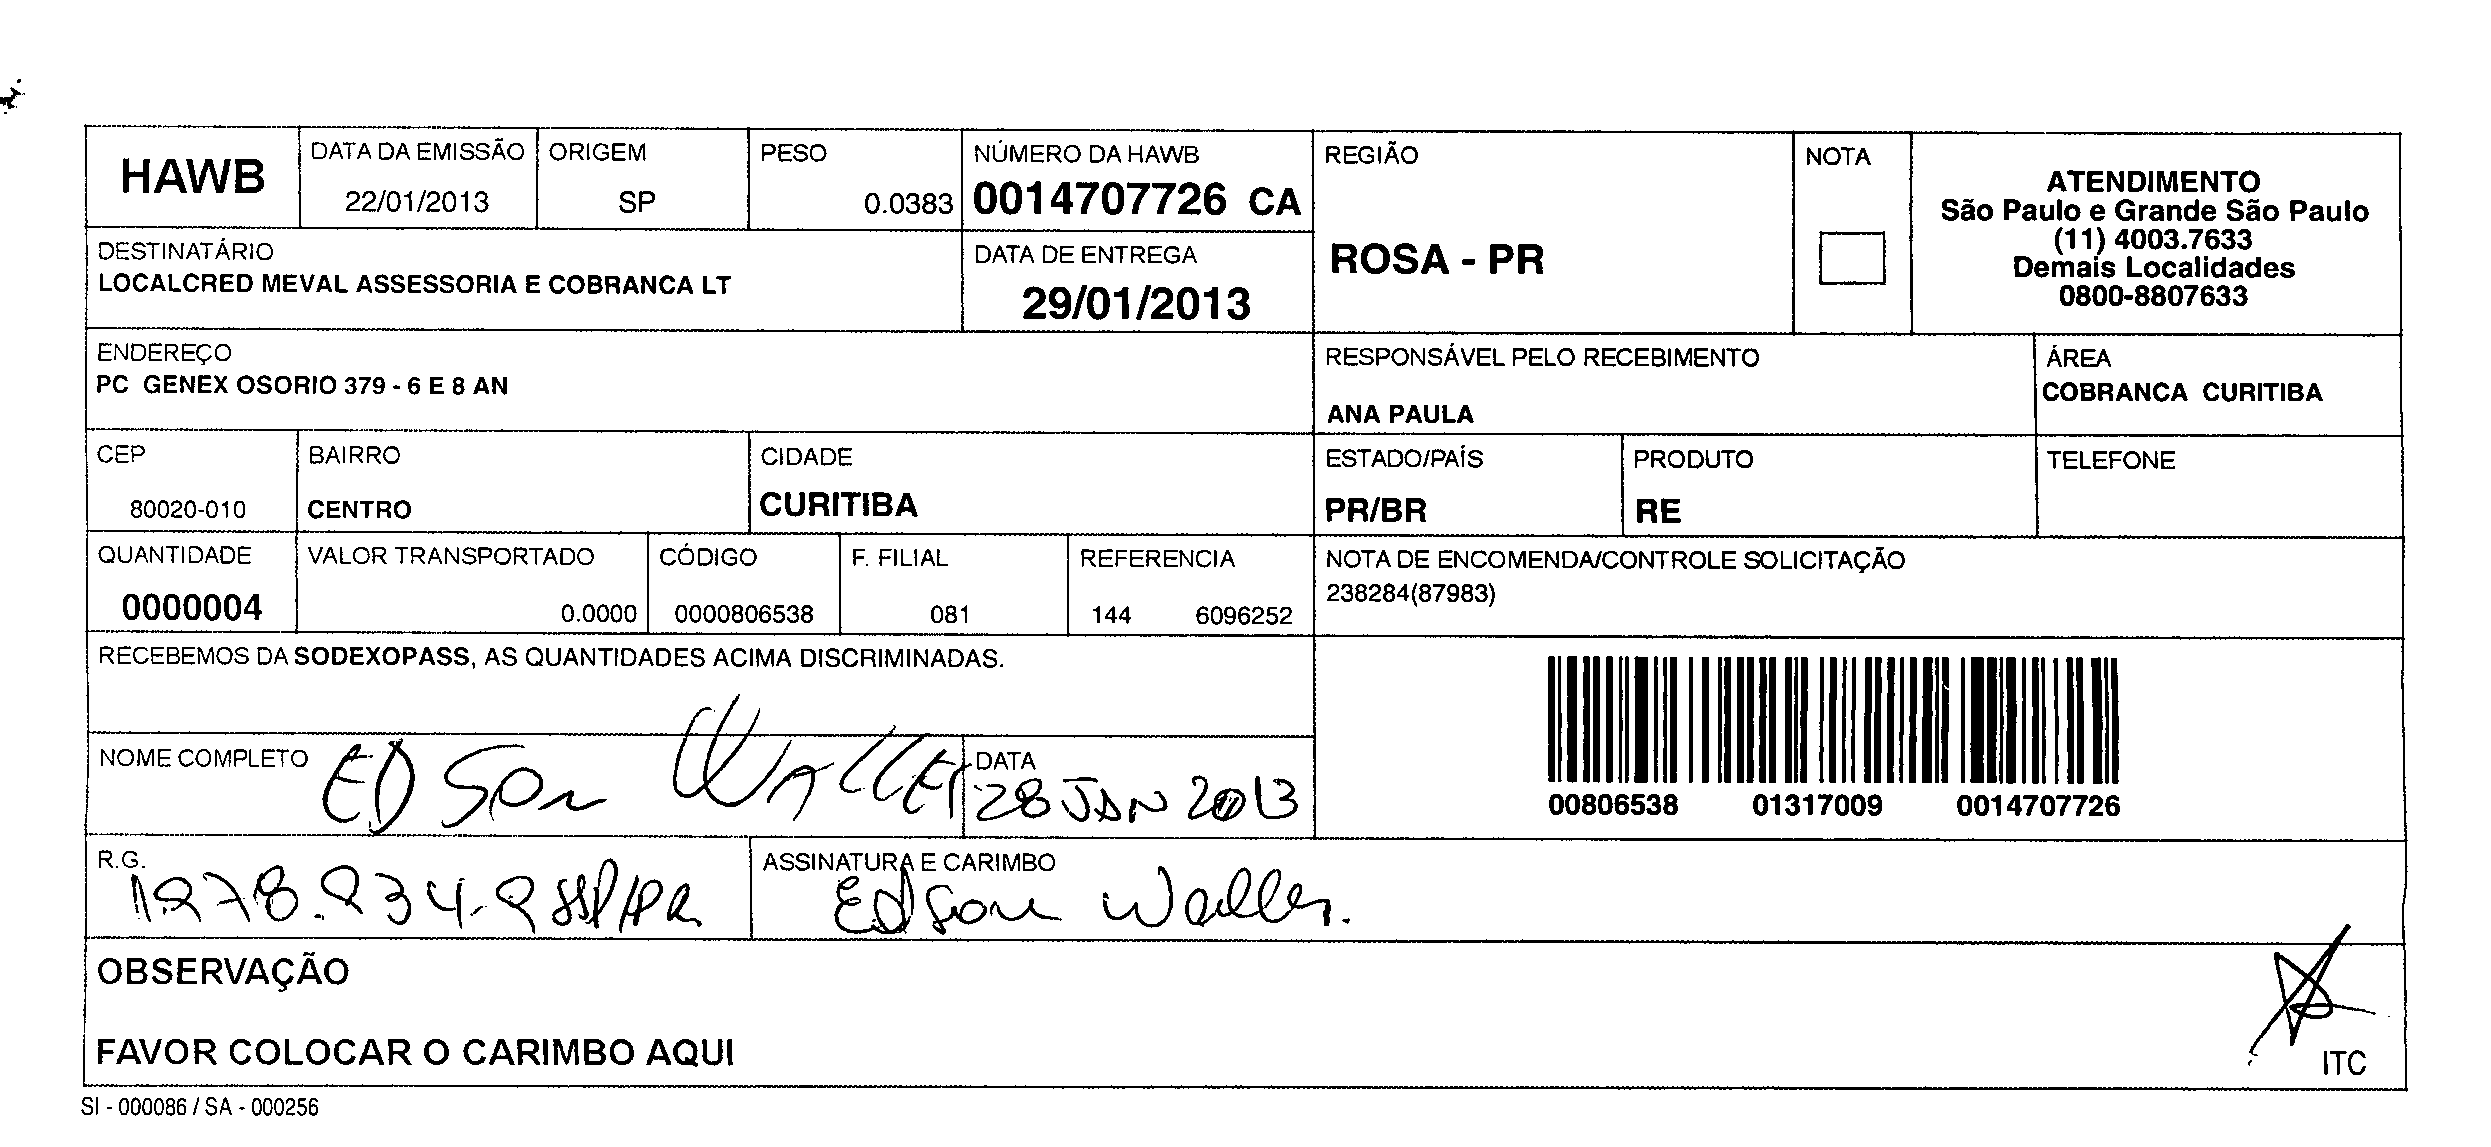 HAWB
DATA DA EMISSÃO
22/01/2013
ORIGEM
SP
PESO
0.0383
NÚMERO DA HAWB
0014707726 CA
REGIÃO
ROSA - PR
NOTA
ATENDIMENTO
São Paulo e Grande São Paulo
(11) 4003.7633
Demais Localidades
0800-8807633
DESTINATÁRIO
LOCALCRED MEVAL ASSESSORIA E COBRANCA LT
DATA DE ENTREGA
29/01/2013
ENDEREÇO
PC GENEX OSORIO 379 - 6 E 8 AN
RESPONSÁVEL PELO RECEBIMENTO
ANA PAULA
ÁREA
COBRANCA CURITIBA
CEP
80020-010
BAIRRO
CENTRO
CIDADE
CURITIBA
ESTADO/PAÍS
PR/BR
PRODUTO
RE
TELEFONE
QUANTIDADE
0000004
VALOR TRANSPORTADO
0.0000
CÓDIGO
0000806538
F. FILIAL
081
REFERENCIA
144 6096252
NOTA DE ENCOMENDA/CONTROLE SOLICITAÇÃO
238284(87983)
RECEBEMOS DA SODEXOPASS, AS QUANTIDADES ACIMA DISCRIMINADAS.
00806538 01317009 0014707726
NOME COMPLETO
EDSON
DATA
28 JAN 2013
R.G.
SSP/PR
ASSINATURA E CARIMBO
Edson
OBSERVAÇÃO
FAVOR COLOCAR O CARIMBO AQUI
ITC
SI - 000086 / SA - 000256